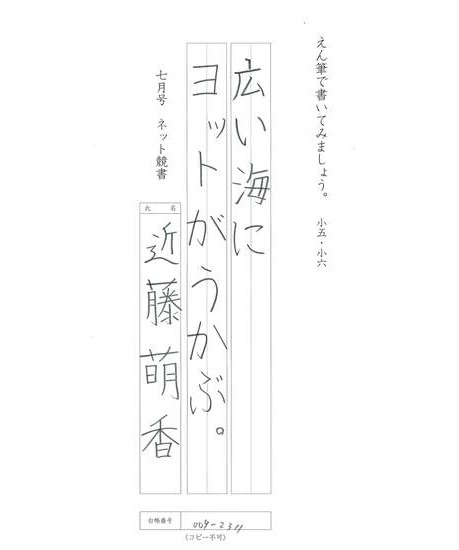 えん筆で書いてみましょう。 小五・小六
広い海に
ヨットがうかぶ。
七月号 ネット競書
氏名
近藤萌香
台帳番号 009-2311
(コピー不可)